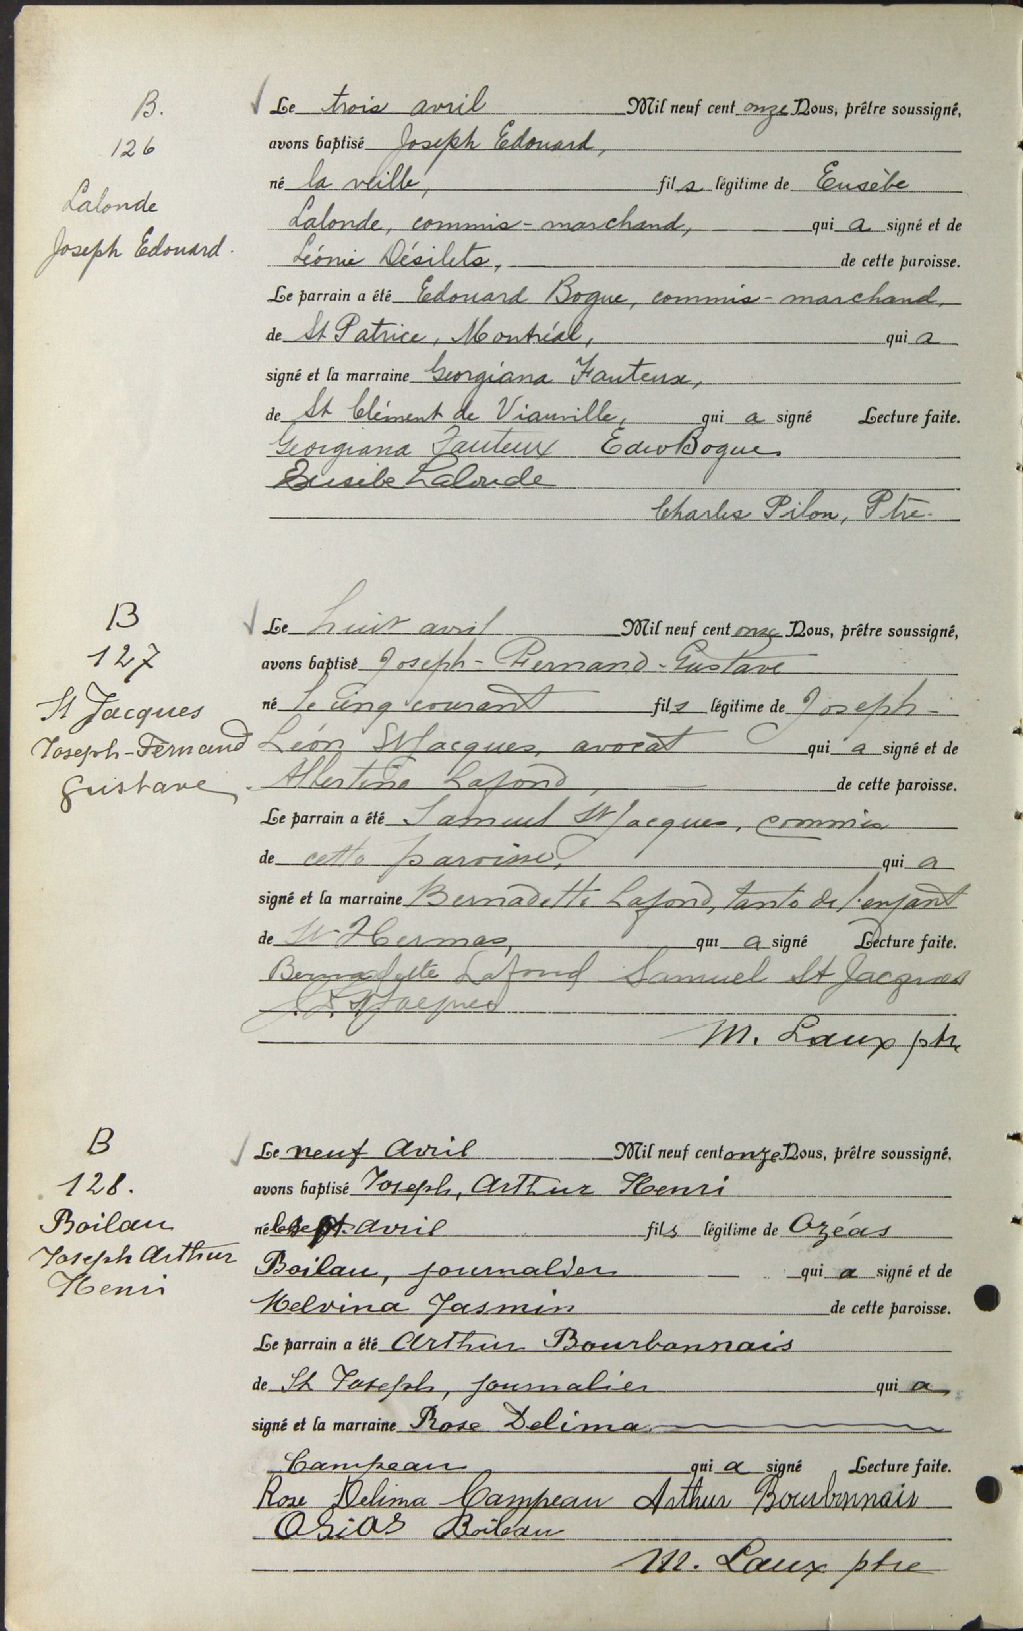 B.
126
Lalonde
Joseph Edouard.
Le trois avril Mil neuf cent onze Nous, prêtre soussigné,
avons baptisé Joseph Edouard,
né la veille, fils légitime de Eusèbe
Lalonde, commis-marchand, qui a signé et de
Léonie Désilets, de cette paroisse.
Le parrain a été Edouard Bogue, commis-marchand,
de St Patrice, Montréal, qui a
signé et la marraine Georgiana Fauteux,
de St Clément de Viauville, qui a signé Lecture faite.
Georgiana Fauteux Edw Bogue
Eusèbe Lalonde
Charles Pilon, Ptre.
B
127
St Jacques
Joseph-Fernand
Gustave
Le huit avril Mil neuf cent onze Nous, prêtre soussigné,
avons baptisé Joseph-Fernand-Gustave
né le cinq courant fils légitime de Joseph-
Léon St Jacques, avocat qui a signé et de
Albertine Lafond, de cette paroisse.
Le parrain a été Samuel St Jacques, commis
de cette paroisse, qui a
signé et la marraine Bernadette Lafond, tante de l'enfant
de St Hermas, qui a signé Lecture faite.
Bernadette Lafond Samuel St Jacques
J. L. St Jacques
M. Laux ptre
B
128.
Boilau
Joseph Arthur
Henri
Le neuf Avril Mil neuf cent onze Nous, prêtre soussigné,
avons baptisé Joseph, Arthur Henri
né le sept avril fils légitime de Ozéas
Boilau, journalier qui a signé et de
Melvina Jasmin de cette paroisse.
Le parrain a été Arthur Bourbonnais
de St Joseph, journalier qui a
signé et la marraine Rose Delima
Campeau qui a signé Lecture faite.
Rose Delima Campeau Arthur Bourbonnais
Osias Boileau
M. Laux ptre